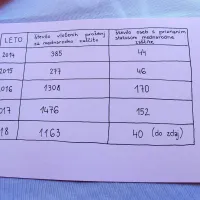 LETO
število vloženih prošenj
za mednarodno zaščito
število oseb s priznanim
statusom mednarodne
zaščite
2014
385
44
2015
277
46
016
1308
170
017
1476
152
18
1163
40 (do zdaj)